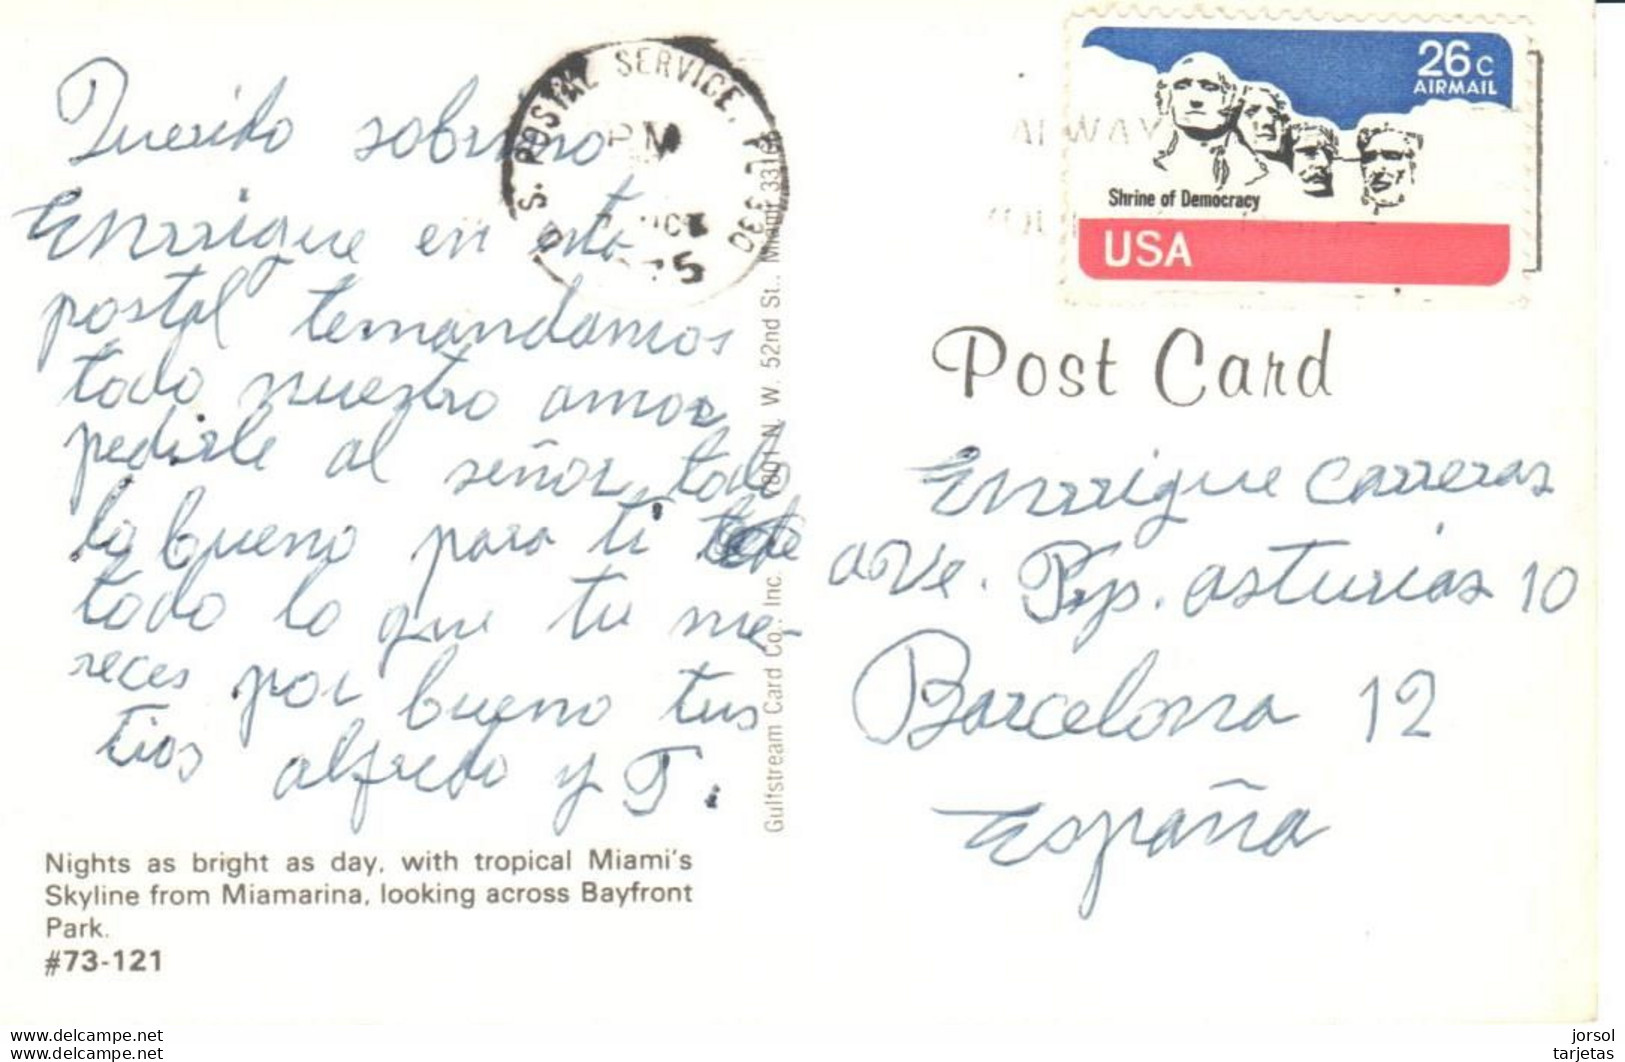 Querido sobrino
Enrrique en esta
postal temandamos
todo nuestro amor
pedirle al señor todo
lo bueno para ti
todo lo que tu me-
reces por bueno tus
tios alfredo y T.
Nights as bright as day, with tropical Miami's
Skyline from Miamarina, looking across Bayfront
Park.
#73-121
Gulfstream Card Co., Inc. N. W. 52nd St., Miami
U.S. POSTAL SERVICE, FL 330
PM
26c
AIRMAIL
Shrine of Democracy
USA
Post Card
Enrrique Carreras
ave. Prp. asturias 10
Barcelona 12
España
www.delcampe.net
www.delcampe.net
jorsol
tarjetas